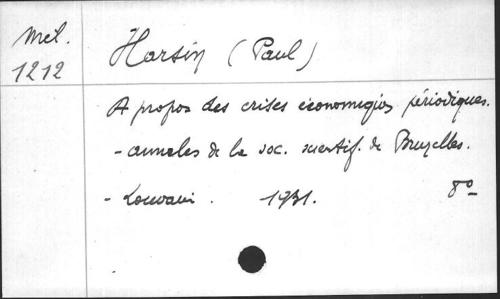 Mél.
1212
Harsin (Paul)
A propos des crises économiques périodiques.
- annales de la soc. scientif. de Bruxelles.
- Louvain. 1931. 8º